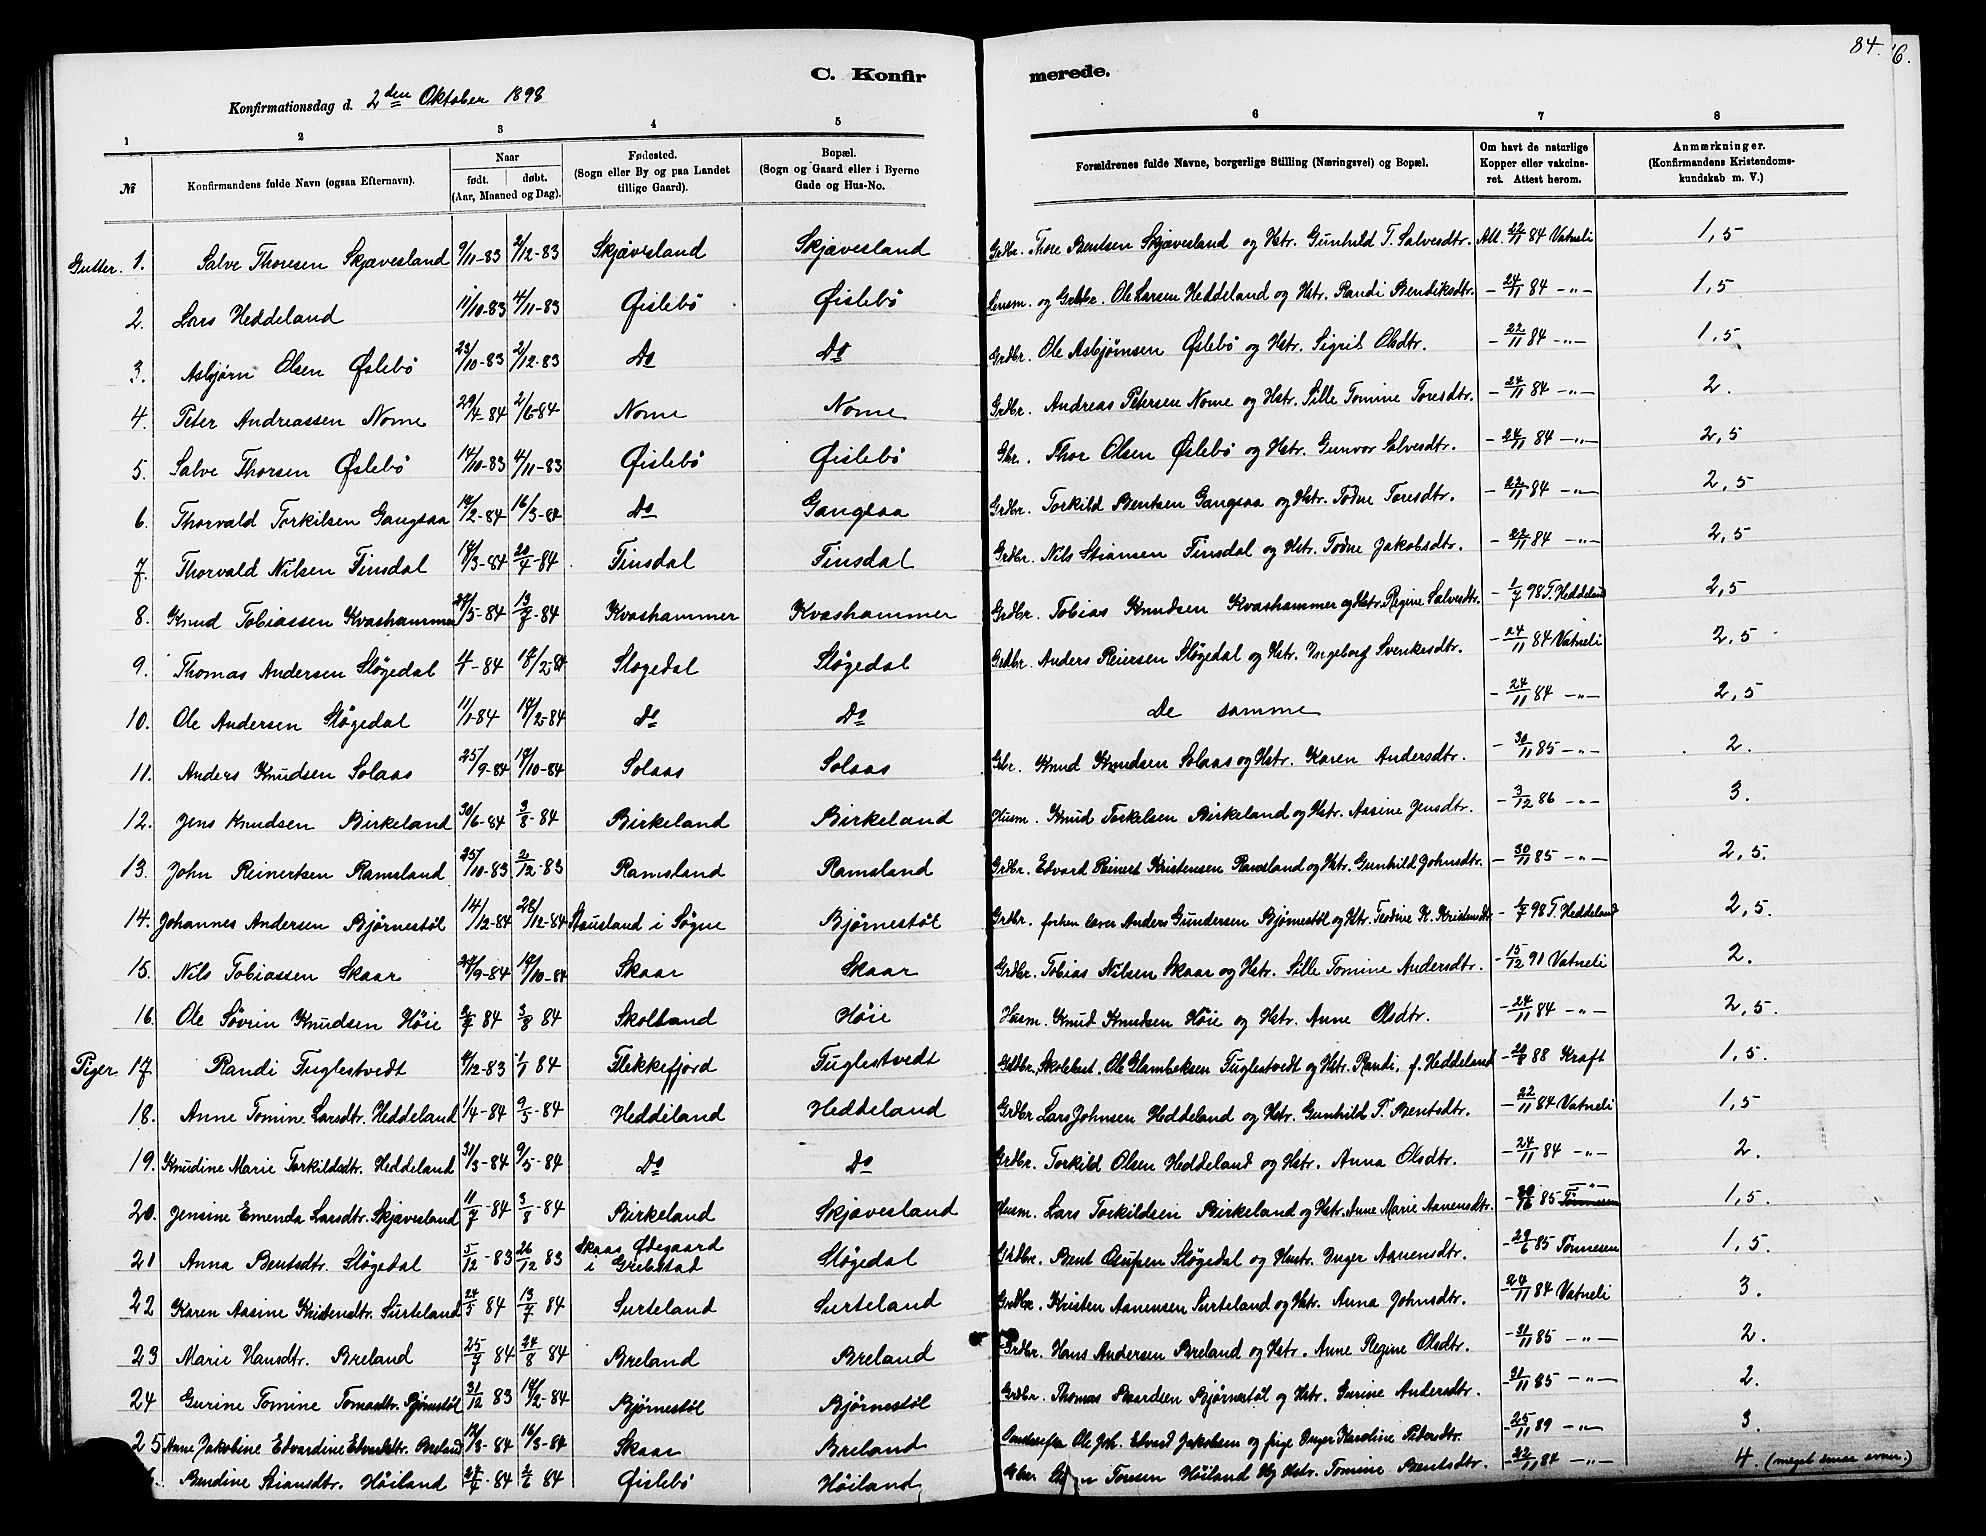 84. 6.
C. Konfirmerede.
Konfirmationsdag d. 2den Oktober 1898
1 2 3 4 5 6 7 8
№ Konfirmandens fulde Navn (ogsaa Efternavn). Naar født. døbt. (Aar, Maaned og Dag). Fødested. (Sogn eller By og paa Landet tillige Gaard). Bopæl. (Sogn og Gaard eller i Byerne Gade og Hus-No. Forældrenes fulde Navne, borgerlige Stilling (Næringsvei) og Bopæl. Om havt de naturlige Kopper eller vakcineret. Attest herom. Anmærkninger. (Konfirmandens Kristendomskundskab m. V.)
Gutter. 1. Salve Thoresen Skjævesland 9/11-83 2/12-83 Skjævesland Skjævesland Grdbr. Thore Bentsen Skjævesland og Hstr. Gunhild T. Salvesdtr. Att. 22/11 84 Vatneli 1,5
2. Lars Heddeland 11/10-83 4/11-83 Øislebö Øislebö Lensm. og Grdbr. Ole Larsen Heddeland og Hstr. Randi Bendiksdtr. - 24/11 84 -"- 1,5
3. Asbjørn Olsen Øslebö 23/10-83 2/12-83 Do Do Grdbr. Ole Asbjørnsen Øslebö og Hstr. Sigrid Olsdtr. - 22/11 84 -"- 1,5
4. Peter Andreassen Nome 29/4-84 2/6-84 Nome Nome Grdbr. Andreas Petersen Nome og Hstr. Sille Tomine Toresdtr. - 24/11 84 -"- 2.
5. Salve Thorsen Øslebö 14/10-83 4/11-83 Øislebö Øislebö Gbr. Thor Olsen Øslebö og Hstr. Gunvor Salvesdtr. - 24/11 84 -"- 2,5
6. Thorvald Torkilsen Gangsaa 12/2-84 16/3-84 Do Gangsaa Grdbr. Torkild Bentsen Gangsaa og Hstr. Todne Toresdtr. - 22/11 84 -"- 2,5
7. Thorvald Nilsen Finsdal 17/3-84 20/4-84 Finsdal Finsdal Grdbr. Nils Stiansen Finsdal og Hstr. Todne Jakobsdtr. - 22/11 84 -"- 2,5
8. Knud Tobiassen Kvashammer 27/5-84 13/7-84 Kvashammer Kvashammer Grdbr. Tobias Knudsen Kvashammer og Hstr. Regine Salvesdtr. - 1/7 98 T. Heddeland 2,5
9. Thomas Andersen Sløgedal -84 17/2-84 Sløgedal Sløgedal Grdbr. Anders Reiersen Sløgedal og Hstr. Ingeborg Svenkesdtr. - 24/11 84 Vatneli 2,5
10. Ole Andersen Sløgedal 11/1-84 17/2-84 Do Do De samme - 24/11 84 -"- 2,5
11. Anders Knudsen Solaas 25/9-84 19/10-84 Solaas Solaas Gbr. Knud Knudsen Solaas og Hstr. Karen Andersdtr. - 30/11 85 -"- 2.
12. Jens Knudsen Birkeland 30/6-84 3/8-84 Birkeland Birkeland Husm. Knud Torkelsen Birkeland og Hstr. Aasine Jensdtr. - 3/12 86 -"- 3.
13. John Reinertsen Ramsland 25/10-83 2/12-83 Ramsland Ramsland Grdbr. Edvard Reinert Kristensen Ramsland og Hstr. Gunhild Johnsdtr. - 30/11 85 -"- 2,5.
14. Johannes Andersen Bjørnestøl 14/12-84 28/12-84 Stausland i Søgne Bjørnestøl Grdbr. forhen lærer Anders Gundersen Bjørnestøl og Hstr. Teodine K. Kristensdtr. - 1/7 98 T. Heddeland 2,5.
15. Nils Tobiassen Skaar 24/9-84 19/10-84 Skaar Skaar Grdbr. Tobias Nilsen Skaar og Hstr. Sille Tomine Andersdtr. - 15/12 91 Vatneli 2.
16. Ole Søvrin Knudsen Høie 2/7 84 3/8 84 Skolland Høie Husm. Knud Knudsen Høie og Hstr. Anne Olsdtr. - 24/11 84 -"- 2,5.
Piger 17 Randi Fuglestvedt 4/12-83 1/1 84 Flekkefjord Fuglestvedt Grdbr. Skolebest. Ole Glambeksen Fuglestvedt og Hstr. Randi, f. Heddeland - 20/8 88 Kraft 1,5.
18. Anne Tomine Larsdtr. Heddeland 1/4-84 9/5-84 Heddeland Heddeland Grdbr. Lars Johnsen Heddeland og Hstr. Gunhild T. Bentsdtr. - 22/11 84 Vatneli 1,5
19. Knudine Marie Torkildsdtr. Heddeland 31/3-84 9/5-84 Do Do Grdbr. Torkild Olsen Heddeland og Hstr. Anna Olsdtr. - 24/11 84 -"- 2.
20. Jensine Emenda Larsdtr. Skjævesland 11/7-84 3/8-84 Birkeland Skjævesland Husm. Lars Torkildsen Birkeland og Hstr. Anne Marie Aanensdtr. 85 Tønnesen -"- 1,5.
21 Anna Bentsdtr. Sløgedal 5/12-83 26/12 83 Skaar Ødegaard i Grebstad Sløgedal Grdbr. Bent Osufsen Sløgedal og Hustr. Inger Aanensdtr. - 29/6 85 Tønnesen 1,5.
22 Karen Aasine Kristensdtr. Surteland 24/5 84 13/7 84 Surteland Surteland Grdbr. Kristen Aanensen Surteland og Hstr. Anna Johnsdtr. - 24/11 84 Vatneli 3.
23 Marie Hansdtr. Breland 25/7 84 24/8 84 Breland Breland Grdbr. Hans Andersen Breland og Hstr. Anne Regine Olsdtr. - 31/11 85 -"- 2.
24 Gurine Tomine Tomasdtr. Bjørnestøl 31/12 83 17/2-84 Bjørnestøl Bjørnestøl Grdbr. Thomas Baardsen Bjørnestøl og Hstr. Gurine Andersdtr. - 31/11 85 -"- 2.
25 Anne Jakobine Edvardine Edvardsdtr. Breland 12/3-84 16/3-84 Skaar Breland Ole Joh. Edvard Jakobsen og pige Inger Karoline Pedersdtr. - 25/11 89 -"- 3
Bendine Stiansdtr. Høiland 27/4-84 2/6 84 Øislebö Høiland Gbr. Toresen Høiland og Hstr. Tomine Bentsdtr. - 22/11 84 -"- 4. (meget smaa evner.)